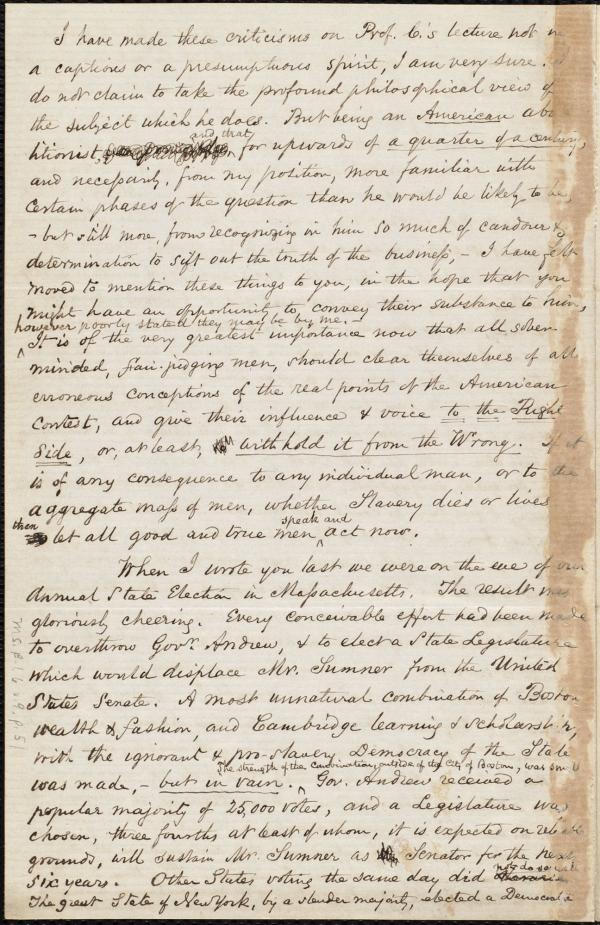 I have made these criticisms on Prof. C.'s lecture not
a captious or a presumptuous spirit, I am very sure.
do not claim to take the profound philosophical view of
the subject which he does. But being an American abo
and that
litionist, for upwards of a quarter of a century,
and necessarily, from my position, more familiar with
certain phases of the question than he would be likely to be,
- but still more, from recognizing in him so much of candour &
determination to sift out the truth of the business, - I have felt
moved to mention these things to you, in the hope that you
might have an opportunity to convey their substance to him,
however poorly stated they may be by me. -
It is of the very greatest importance now that all sober-
minded, fair-judging men, should clear themselves of all
erroneous conceptions of the real points of the American
Contest, and give their influence & voice to the Right
Side, or, at least, withhold it from the Wrong. If it
is of any consequence to any individual man, or to the
aggregate mass of men, whether Slavery dies or lives
then speak and
let all good and true men ^ act now.
When I wrote you last we were on the eve of our
Annual State Election in Massachusetts. The result was
gloriously cheering. Every conceivable effort had been made
to overthrow Govr. Andrew, & to elect a State Legislature
which would displace Mr. Sumner from the United
States Senate. A most unnatural combination of Boston
wealth & fashion, and Cambridge learning & scholarship,
with the ignorant & pro-slavery Democracy of the State
The strength of the Combination, outside of the City of Boston, was small
was made, - but in vain. ^ Gov. Andrew received a
popular majority of 25,000 votes, and a Legislature was
chosen, three fourths at least of whom, it is expected on reliable
grounds, will sustain Mr. Sumner as Senator for the next
six years. Other States voting the same day did not do so well
The great State of New York, by a slender majority, elected a Democratic